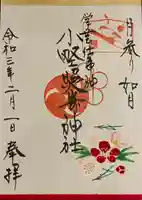 月参り 如月
学芸仕事の神
小野照崎神社
令和三年二月一日 奉拝